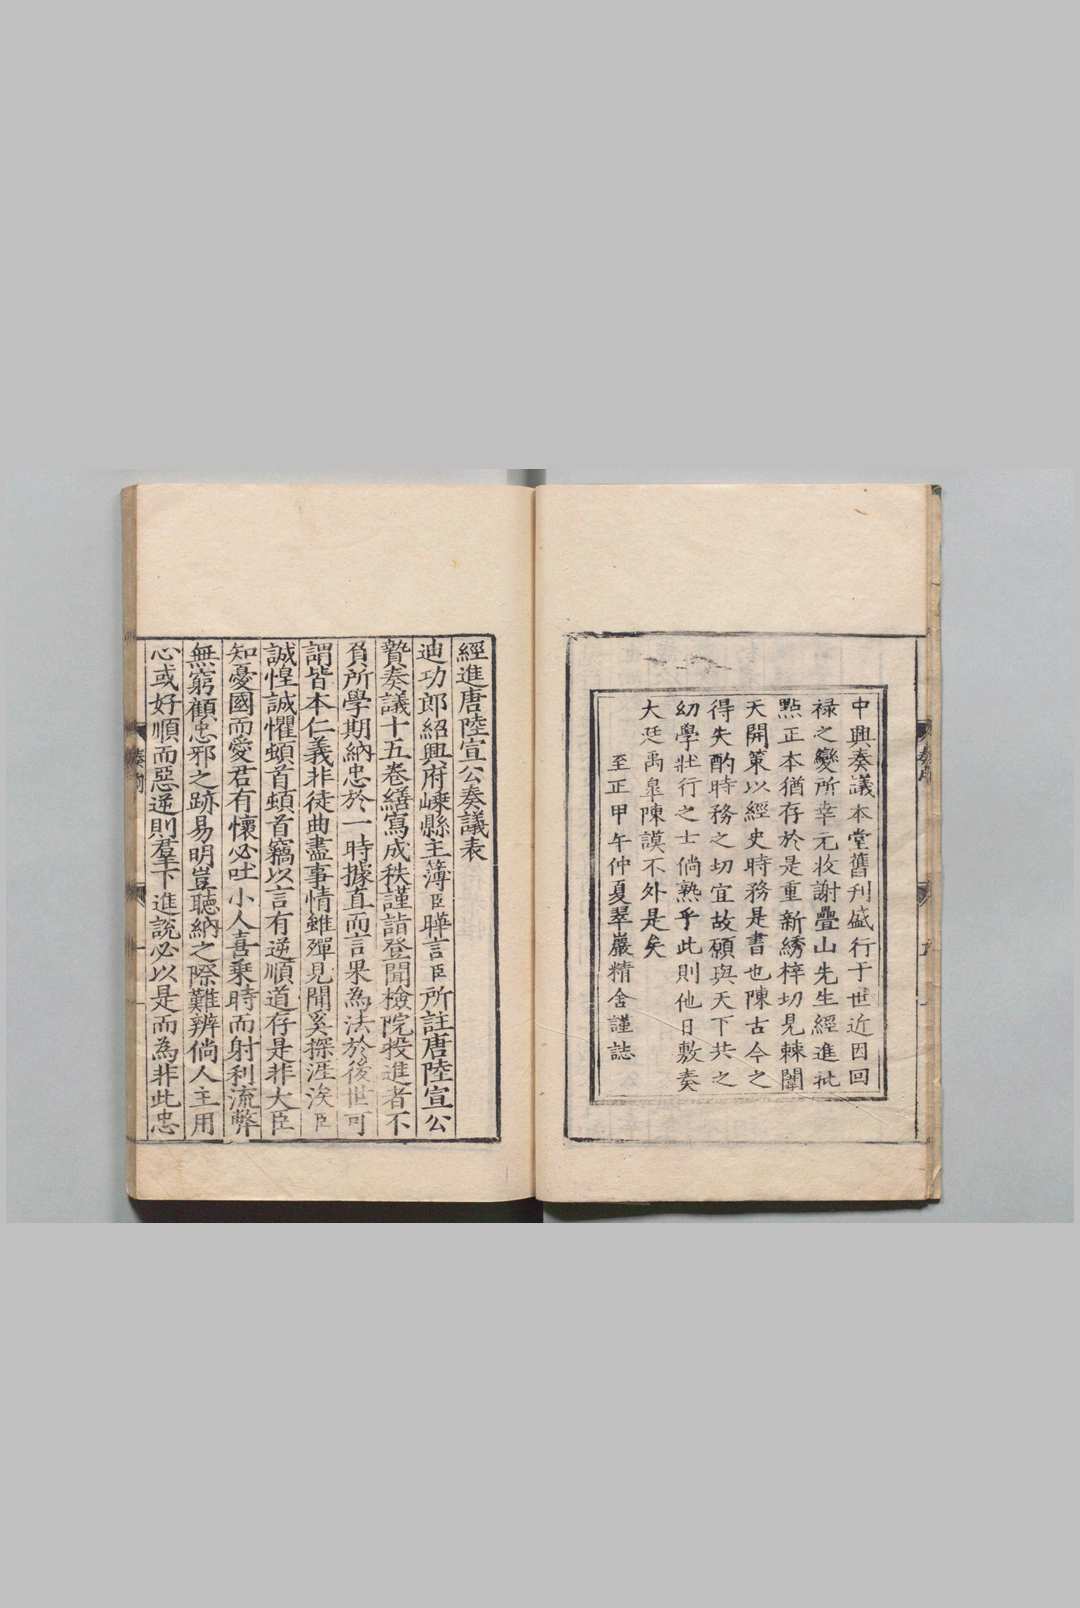 中興奏議本堂舊刋盛行于世近因回
禄之變所幸元收謝疊山先生經進批
㸃正本猶存於是重新綉梓切見棘闈
天開策以經史時務是書也陳古今之
得失酌時務之切宜故願與天下共之
幼學壯行之士倘熟乎此則他日敷奏
大廷禹臯陳謨不外是矣
至正甲午仲夏翠巖精舍謹誌
經進唐陸宣公奏議表
迪功郎紹興府嵊縣主簿臣曄言臣所註唐陸宣公
贄奏議十五卷繕寫成秩謹詣登聞檢院投進者不
負所學期納忠於一時據直而言果為法於後世可
謂皆本仁義非徒曲盡事情雖殫見聞奚探涯涘臣
誠惶誠懼頓首頓首竊以言有逆順道存是非大臣
知憂國而愛君有懷必吐小人喜乘時而射利流弊
無窮顧忠邪之跡易明豈聽納之際難辨倘人主用
心或好順而惡逆則羣下進說必以是而為非此忠